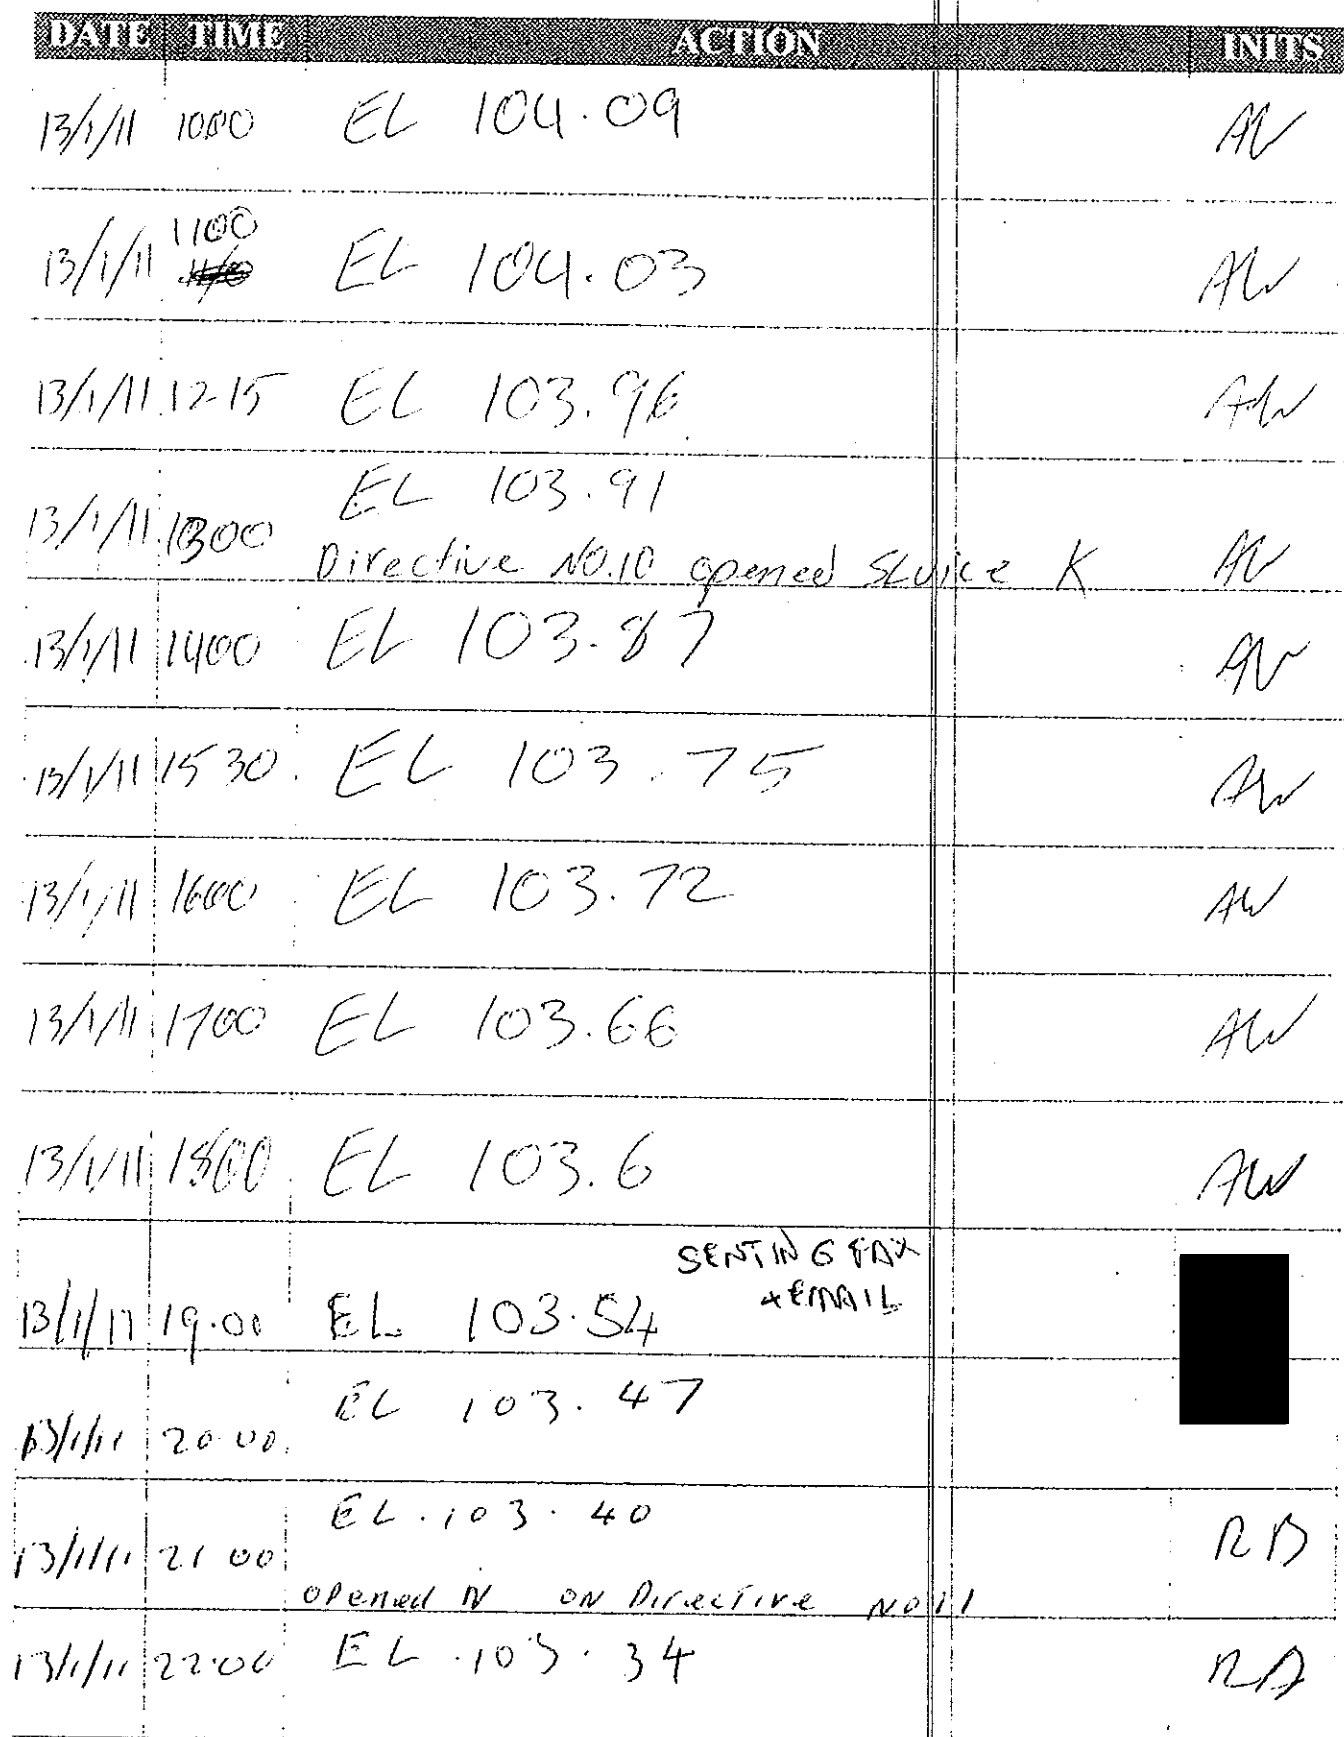 DATE TIME ACTION INITS
13/1/11 1000 EL 104.09 AW
1100
13/1/11 EL 104.03 AW
13/1/11 1215 EL 103.96 AW
EL 103.91
13/1/11 1300 Directive NO.10 opened Sluice K AW
13/1/11 1400 EL 103.87 AW
13/1/11 1530 EL 103.75 AW
13/1/11 1600 EL 103.72 AW
13/1/11 1700 EL 103.66 AW
13/1/11 1800 EL 103.6 AW
SENTIN G FAX
+ EMAIL
13/1/11 19.00 EL 103.54
EL 103.47
13/1/11 20.00
EL.103.40
13/1/11 21 00 RB
opened N ON Directive NO 11
13/1/11 22.00 EL .103.34 RB